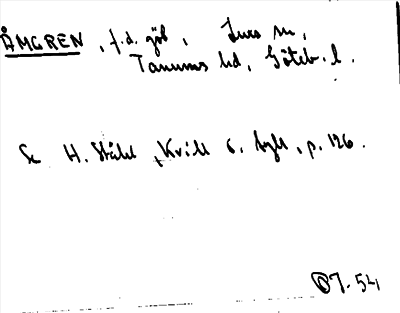 ÅMGREN, f.d. göb, Lurs sn,
Tanums hd, Göteb. l.
Se H. Ståhl, Kvill o. byll, p. 126.
ÖJ. 54